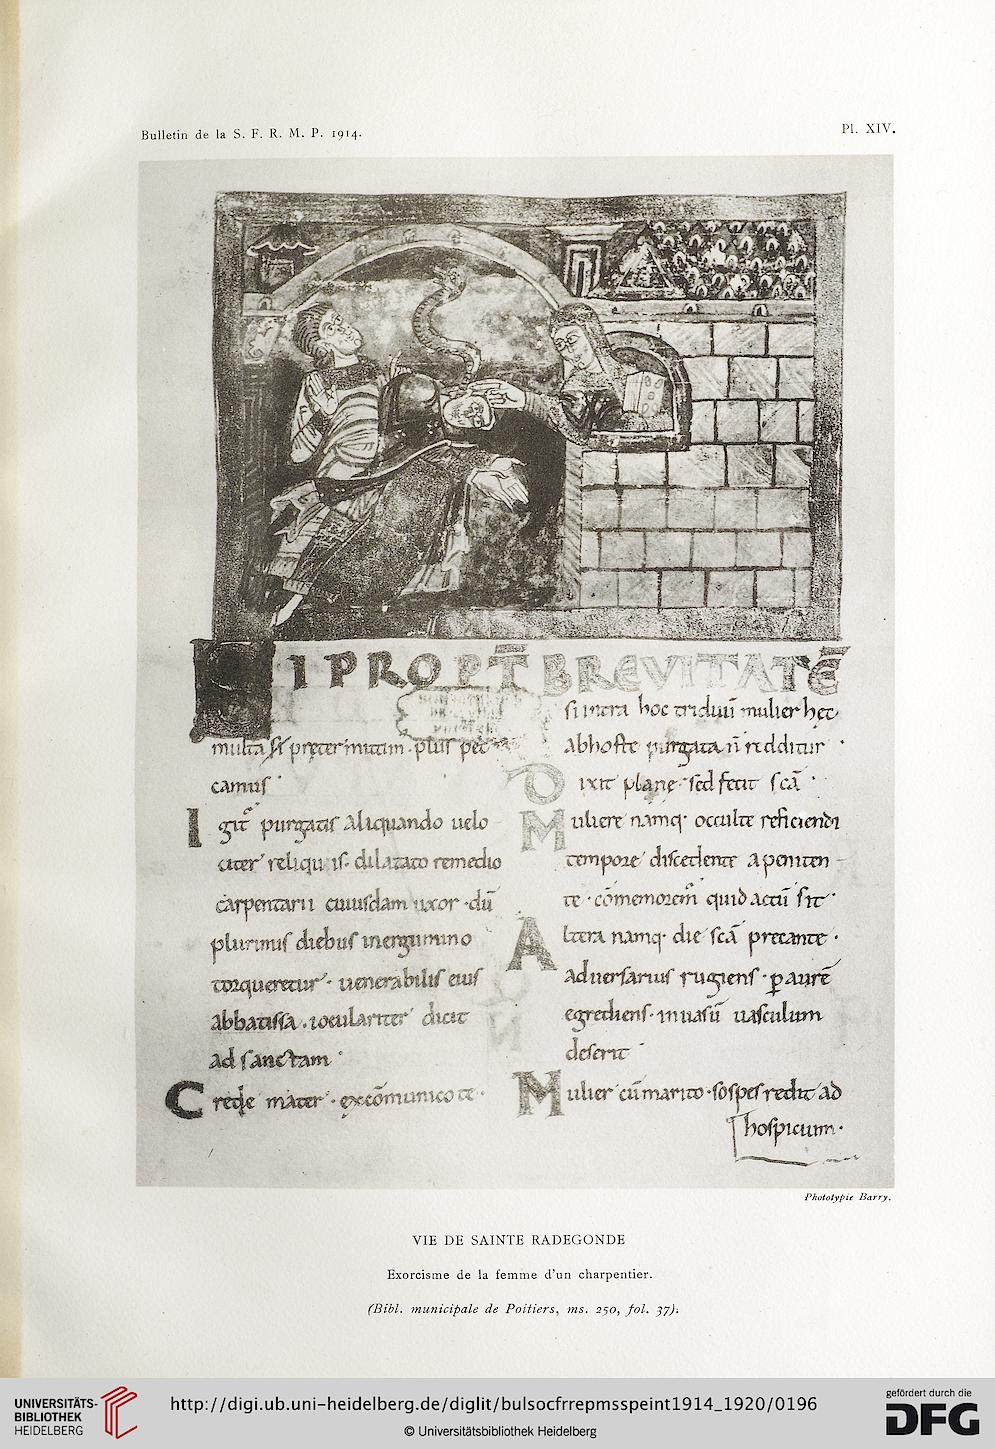 Bulletin de la S. F. R. M. P. 1914.
Pl. XIV.
SI PROPT̄ BREVITATĒ
multa si preter mittim · plus pec
camus
Igit purgatis aliquando uelo
citer reliquiis · dilatato remedio
carpentarii cuiusdam uxor · dū
plurimis diebus inergumino
torqueretur · uenerabilis eius
abbatissa · ioculariter dicit
ad sanctam ·
Crede mater · excōmunico te ·
si intra hoc triduū mulier hec
ab hoste purgata n̄ redditur ·
Dixit plane · sed fecit scā ·
Muliere namq· occulte reficiendi
tempore discedente a peniten
te · cōmemorem quid actū sit ·
Altera namq· die scā precante ·
aduersarius rugiens · ꝑ aurē
egrediens · inuasū uasculum
deserit ·
Mulier cū marito · sospes redit ad
hospicium ·
Phototypie Barry.
VIE DE SAINTE RADEGONDE
Exorcisme de la femme d'un charpentier.
(Bibl. municipale de Poitiers, ms. 250, fol. 37).
UNIVERSITÄTS-
BIBLIOTHEK
HEIDELBERG
http://digi.ub.uni-heidelberg.de/diglit/bulsocfrrepmsspeint1914_1920/0196
© Universitätsbibliothek Heidelberg
gefördert durch die
DFG